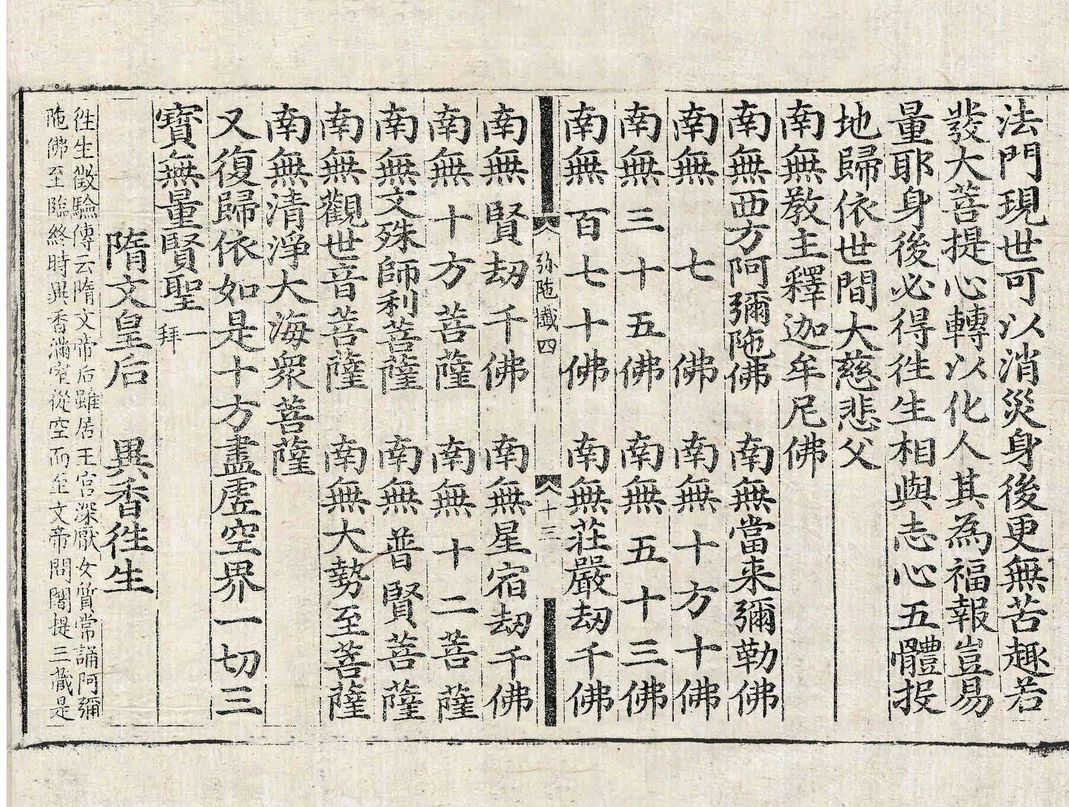 法門現世可以消災身後更無苦趣若
發大菩提心轉以化人其為福報豈易
量耶身後必得往生相與志心五體投
地歸依世間大慈悲父
南無教主釋迦牟尼佛
南無西方阿彌陁佛　南無當来彌勒佛
南無七佛　南無十方十佛
南無三十五佛　南無五十三佛
南無百七十佛　南無莊嚴劫千佛
弥陁懺四　十三
南無賢劫千佛　南無星宿劫千佛
南無十方菩薩　南無十二菩薩
南無文殊師利菩薩　南無普賢菩薩
南無觀世音菩薩　南無大勢至菩薩
南無清淨大海衆菩薩
又復歸依如是十方盡虛空界一切三
寶無量賢聖一拜
隋文皇后　異香往生
往生徴驗傳云隋文帝后雖居王宫深厭女質常誦阿彌
陁佛至臨終時異香滿室從空而至文帝問闍提三藏是